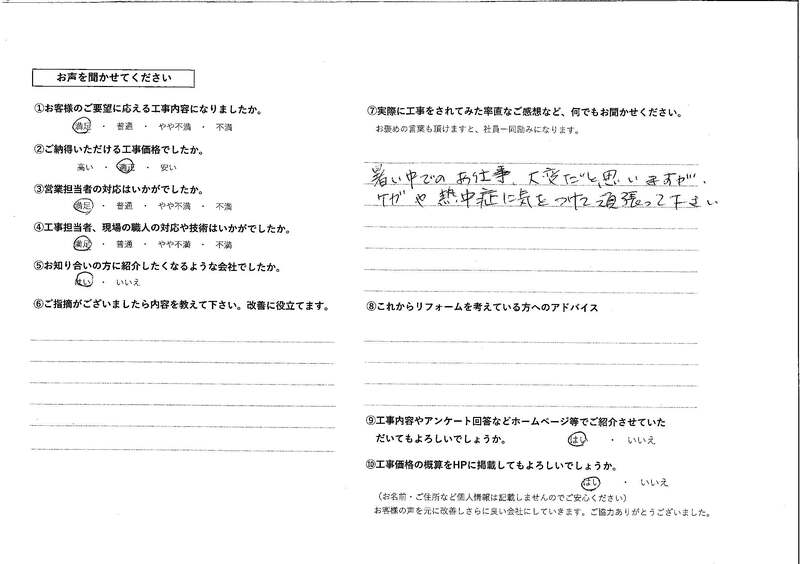 お声を聞かせてください
①お客様のご要望に応える工事内容になりましたか。
満足 ・ 普通 ・ やや不満 ・ 不満
②ご納得いただける工事価格でしたか。
高い ・ 適正 ・ 安い
③営業担当者の対応はいかがでしたか。
満足 ・ 普通 ・ やや不満 ・ 不満
④工事担当者、現場の職人の対応や技術はいかがでしたか。
満足 ・ 普通 ・ やや不満 ・ 不満
⑤お知り合いの方に紹介したくなるような会社でしたか。
はい ・ いいえ
⑥ご指摘がございましたら内容を教えて下さい。改善に役立てます。
⑦実際に工事をされてみた率直なご感想など、何でもお聞かせください。
お褒めの言葉も頂けますと、社員一同励みになります。
暑い中でのお仕事、大変だと思いますが、
ケガや熱中症に気をつけて頑張って下さい
⑧これからリフォームを考えている方へのアドバイス
⑨工事内容やアンケート回答などホームページ等でご紹介させていた
だいてもよろしいでしょうか。 はい ・ いいえ
⑩工事価格の概算をHPに掲載してもよろしいでしょうか。
はい ・ いいえ
（お名前・ご住所など個人情報は記載しませんのでご安心ください）
お客様の声を元に改善しさらに良い会社にしていきます。ご協力ありがとうございました。